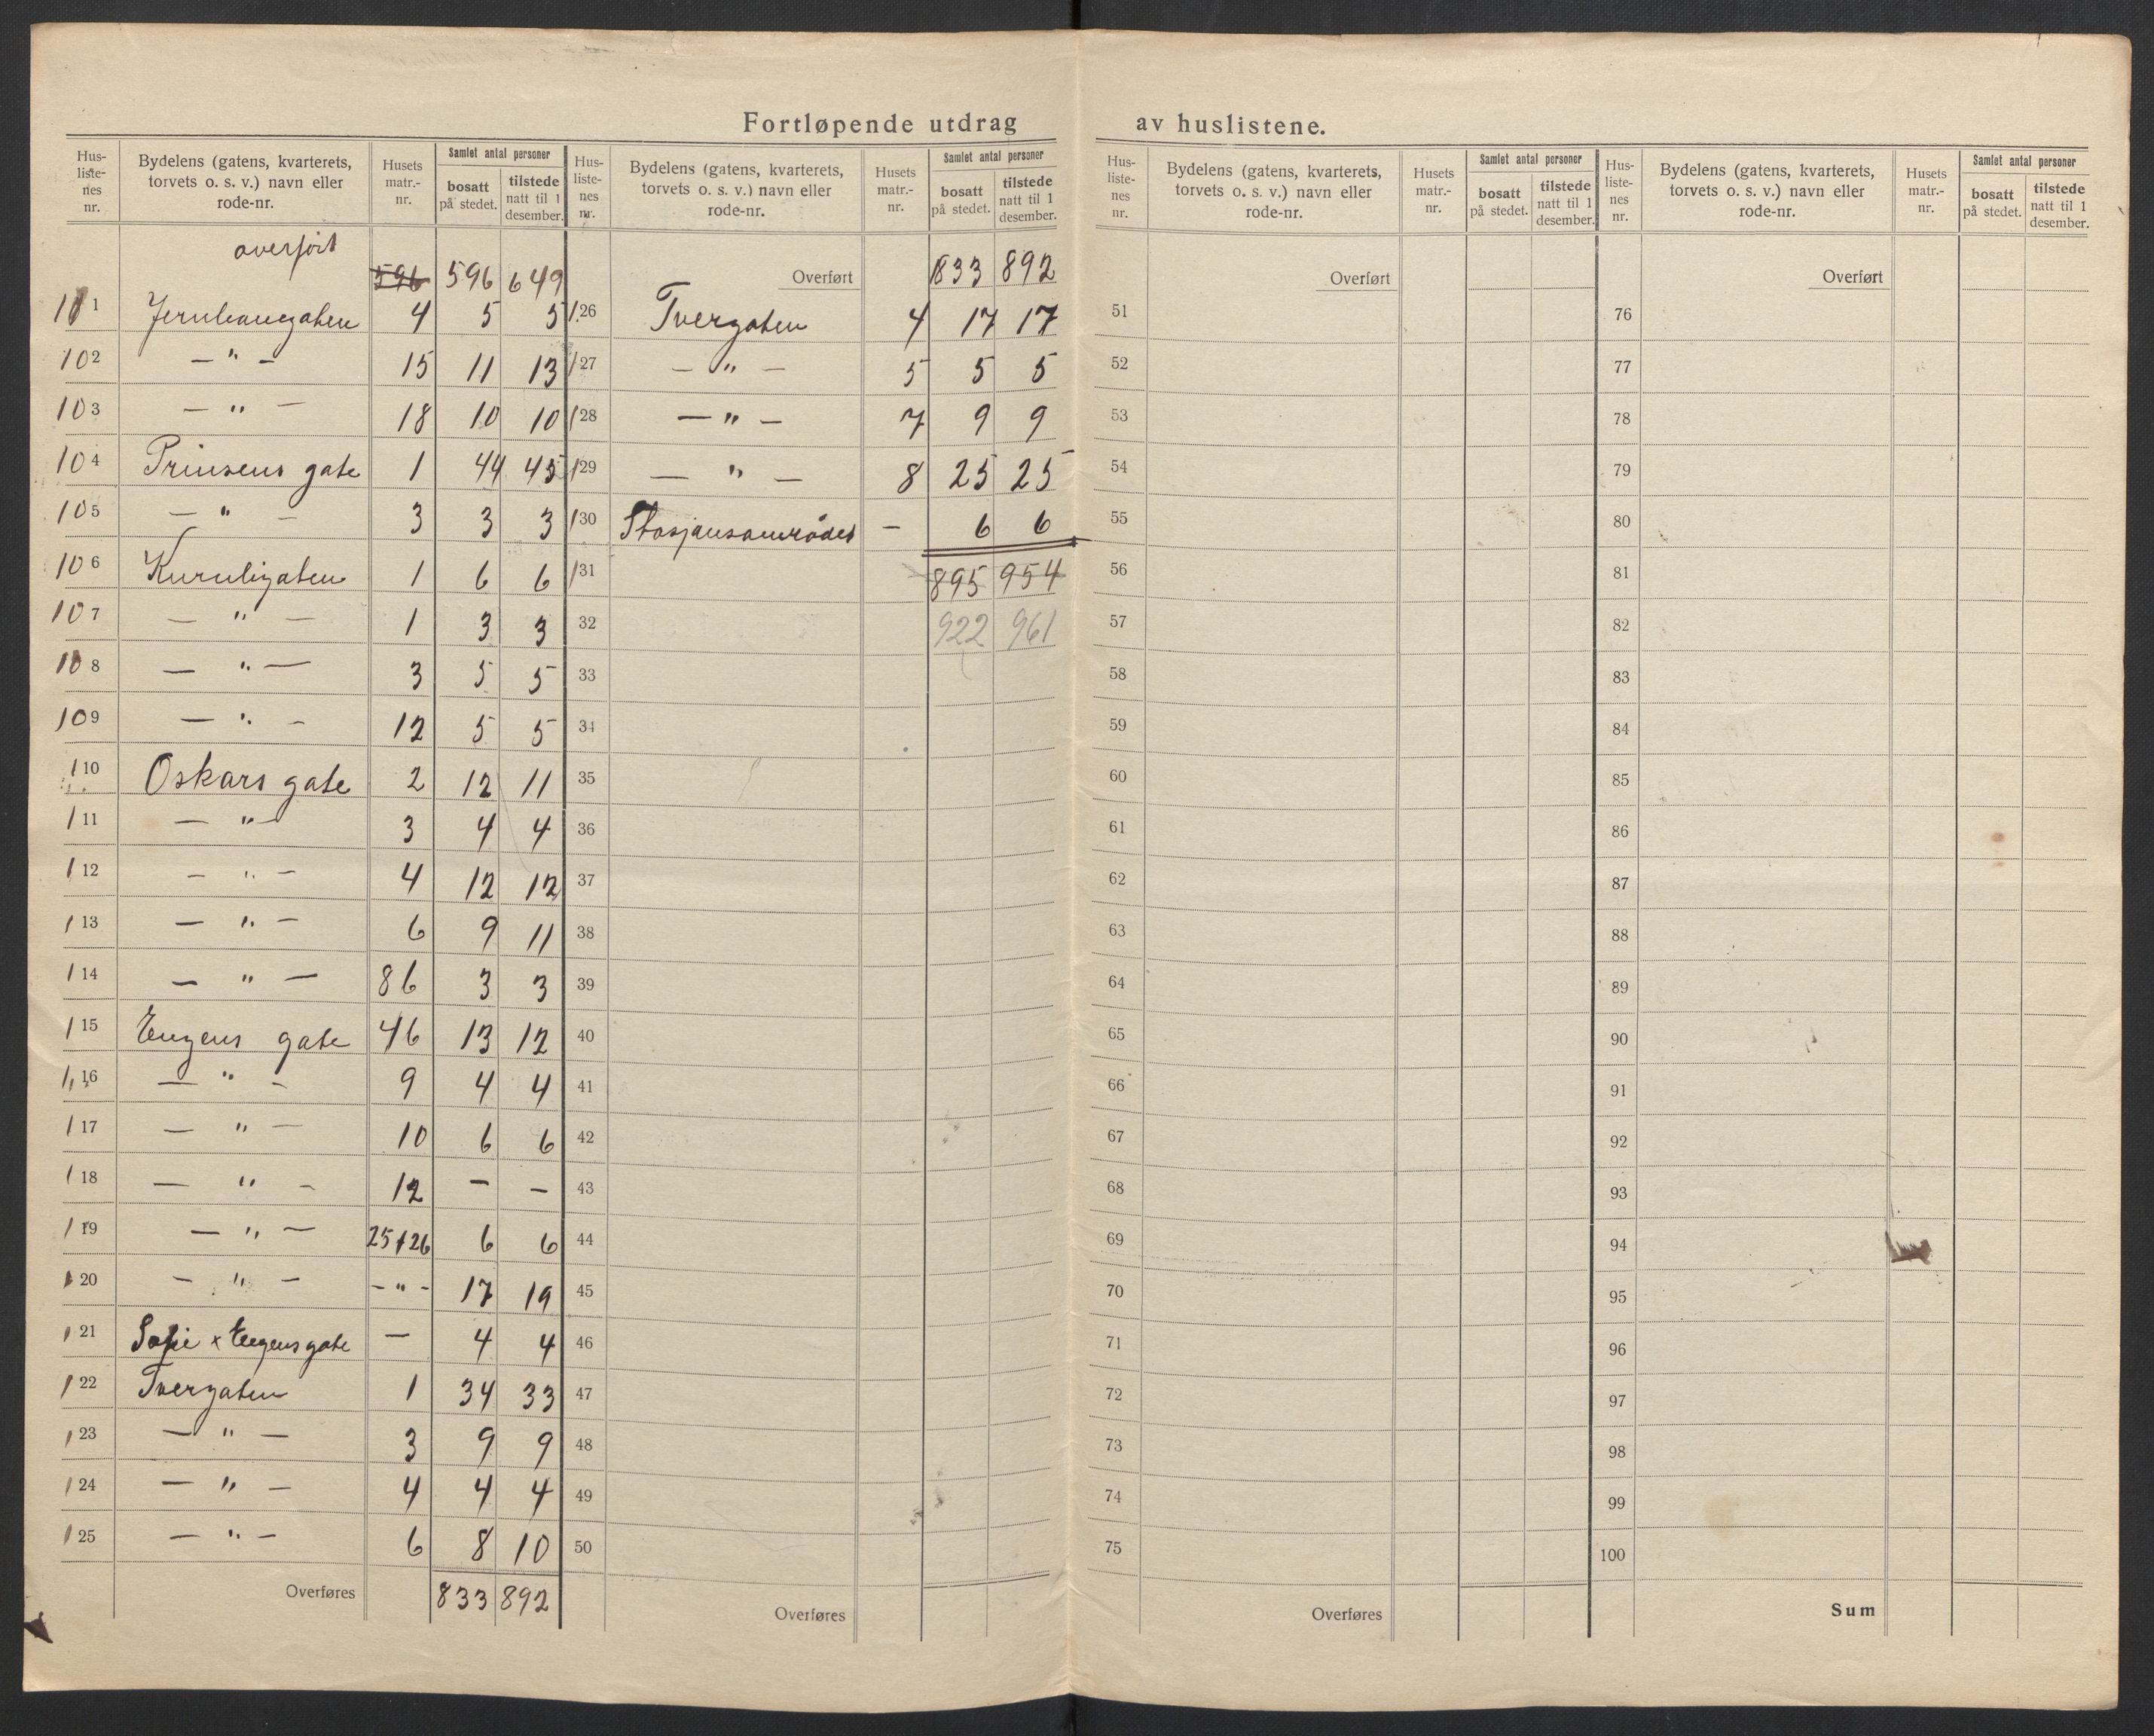 Fortløpende utdrag av huslistene.
Hus-liste-nes nr. | Bydelens (gatens, kvarterets, torvets o. s. v.) navn eller rode-nr. | Husets matr.-nr. | Samlet antal personer | bosatt på stedet. | tilstede natt til 1 desember.
overført 596 596 649
101 Jernbanegaten 4 5 5
102 — " — 15 11 13
103 — " — 18 10 10
104 Prinsens gate 1 44 45
105 — " — 3 3 3
106 1 6 6
107 — " — 1 3 3
108 — " — 3 5 5
109 — " — 12 5 5
110 Oskars gate 2 12 11
111 — " — 3 4 4
112 — " — 4 12 12
113 — " — 6 9 11
114 — " — 86 3 3
115 Eugens gate 46 13 12
116 — " — 9 4 4
117 — " — 10 6 6
118 — " — 12 — —
119 — " — 25+26 6 6
120 — " — - " - 17 19
121 Sofie x Eugens gate — 4 4
122 Tvergaten 1 34 33
123 — " — 3 9 9
124 — " — 4 4 4
125 — " — 6 8 10
Overføres 833 892
Hus-liste-nes nr. | Bydelens (gatens, kvarterets, torvets o. s. v.) navn eller rode-nr. | Husets matr.-nr. | Samlet antal personer | bosatt på stedet. | tilstede natt til 1 desember.
Overført 833 892
126 Tvergaten 4 17 17
127 — " — 5 5 5
128 — " — 7 9 9
129 — " — 8 25 25
130 Stasjonsområdet — 6 6
131 895 954
32 922 961
33
34
35
36
37
38
39
40
41
42
43
44
45
46
47
48
49
50
Overføres
Hus-liste-nes nr. | Bydelens (gatens, kvarterets, torvets o. s. v.) navn eller rode-nr. | Husets matr.-nr. | Samlet antal personer | bosatt på stedet. | tilstede natt til 1 desember.
Overført
51
52
53
54
55
56
57
58
59
60
61
62
63
64
65
66
67
68
69
70
71
72
73
74
75
Overføres
Hus-liste-nes nr. | Bydelens (gatens, kvarterets, torvets o. s. v.) navn eller rode-nr. | Husets matr.-nr. | Samlet antal personer | bosatt på stedet. | tilstede natt til 1 desember.
Overført
76
77
78
79
80
81
82
83
84
85
86
87
88
89
90
91
92
93
94
95
96
97
98
99
100
Sum